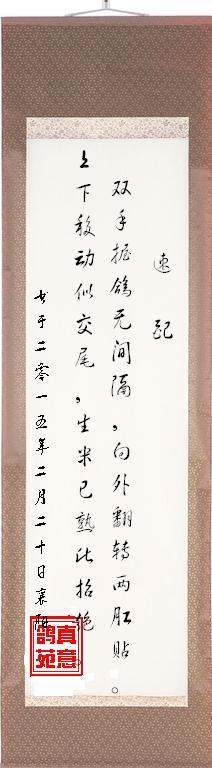 速配
双手握鸽无间隔，向外翻转两肛贴。
上下移动似交尾，生米已熟此招绝。
书于二零一五年二月二十日襄阳
真意鸽苑